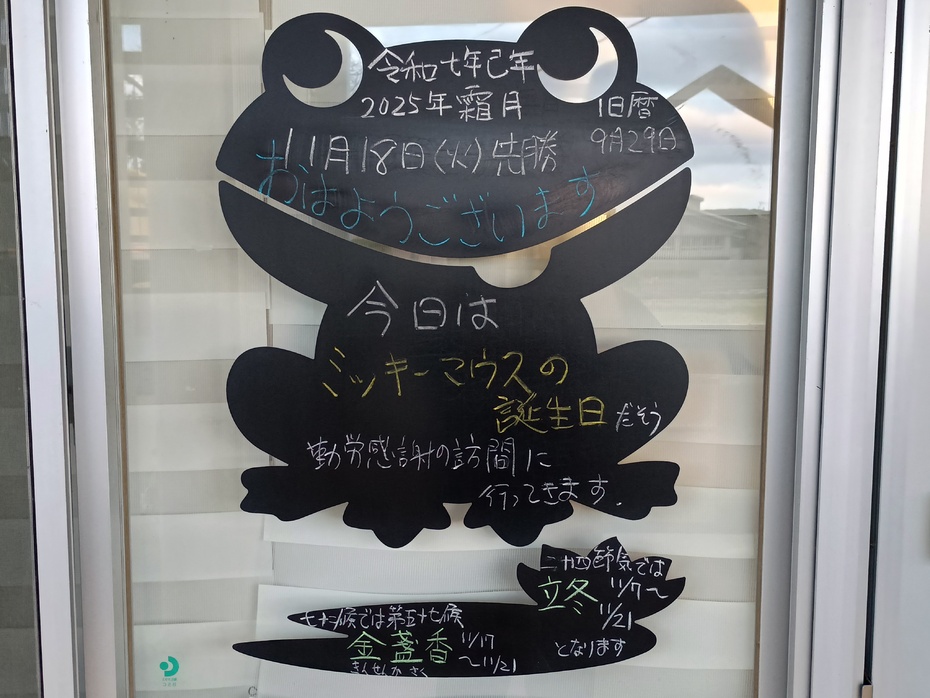 令和七年己年
2025年霜月
旧暦
9月29日
11月18日(火)先勝
おはようございます
今日は
ミッキーマウスの
誕生日だそう
勤労感謝の訪問に
行ってきます.
二十四節気では
立冬 11/7〜
11/21
となります
七十二候では第五十七候
金盞香 11/17
きんせんかさく 〜11/21